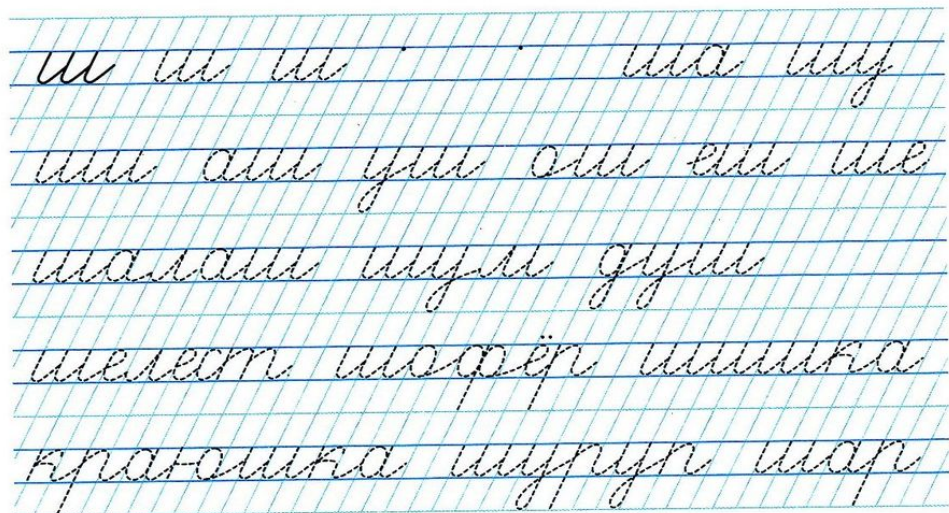 ш ш ш ша шу
ши аш уш ош еш ше
шалаш шум душ
шелест шофёр шишка
краюшка шуруп шар